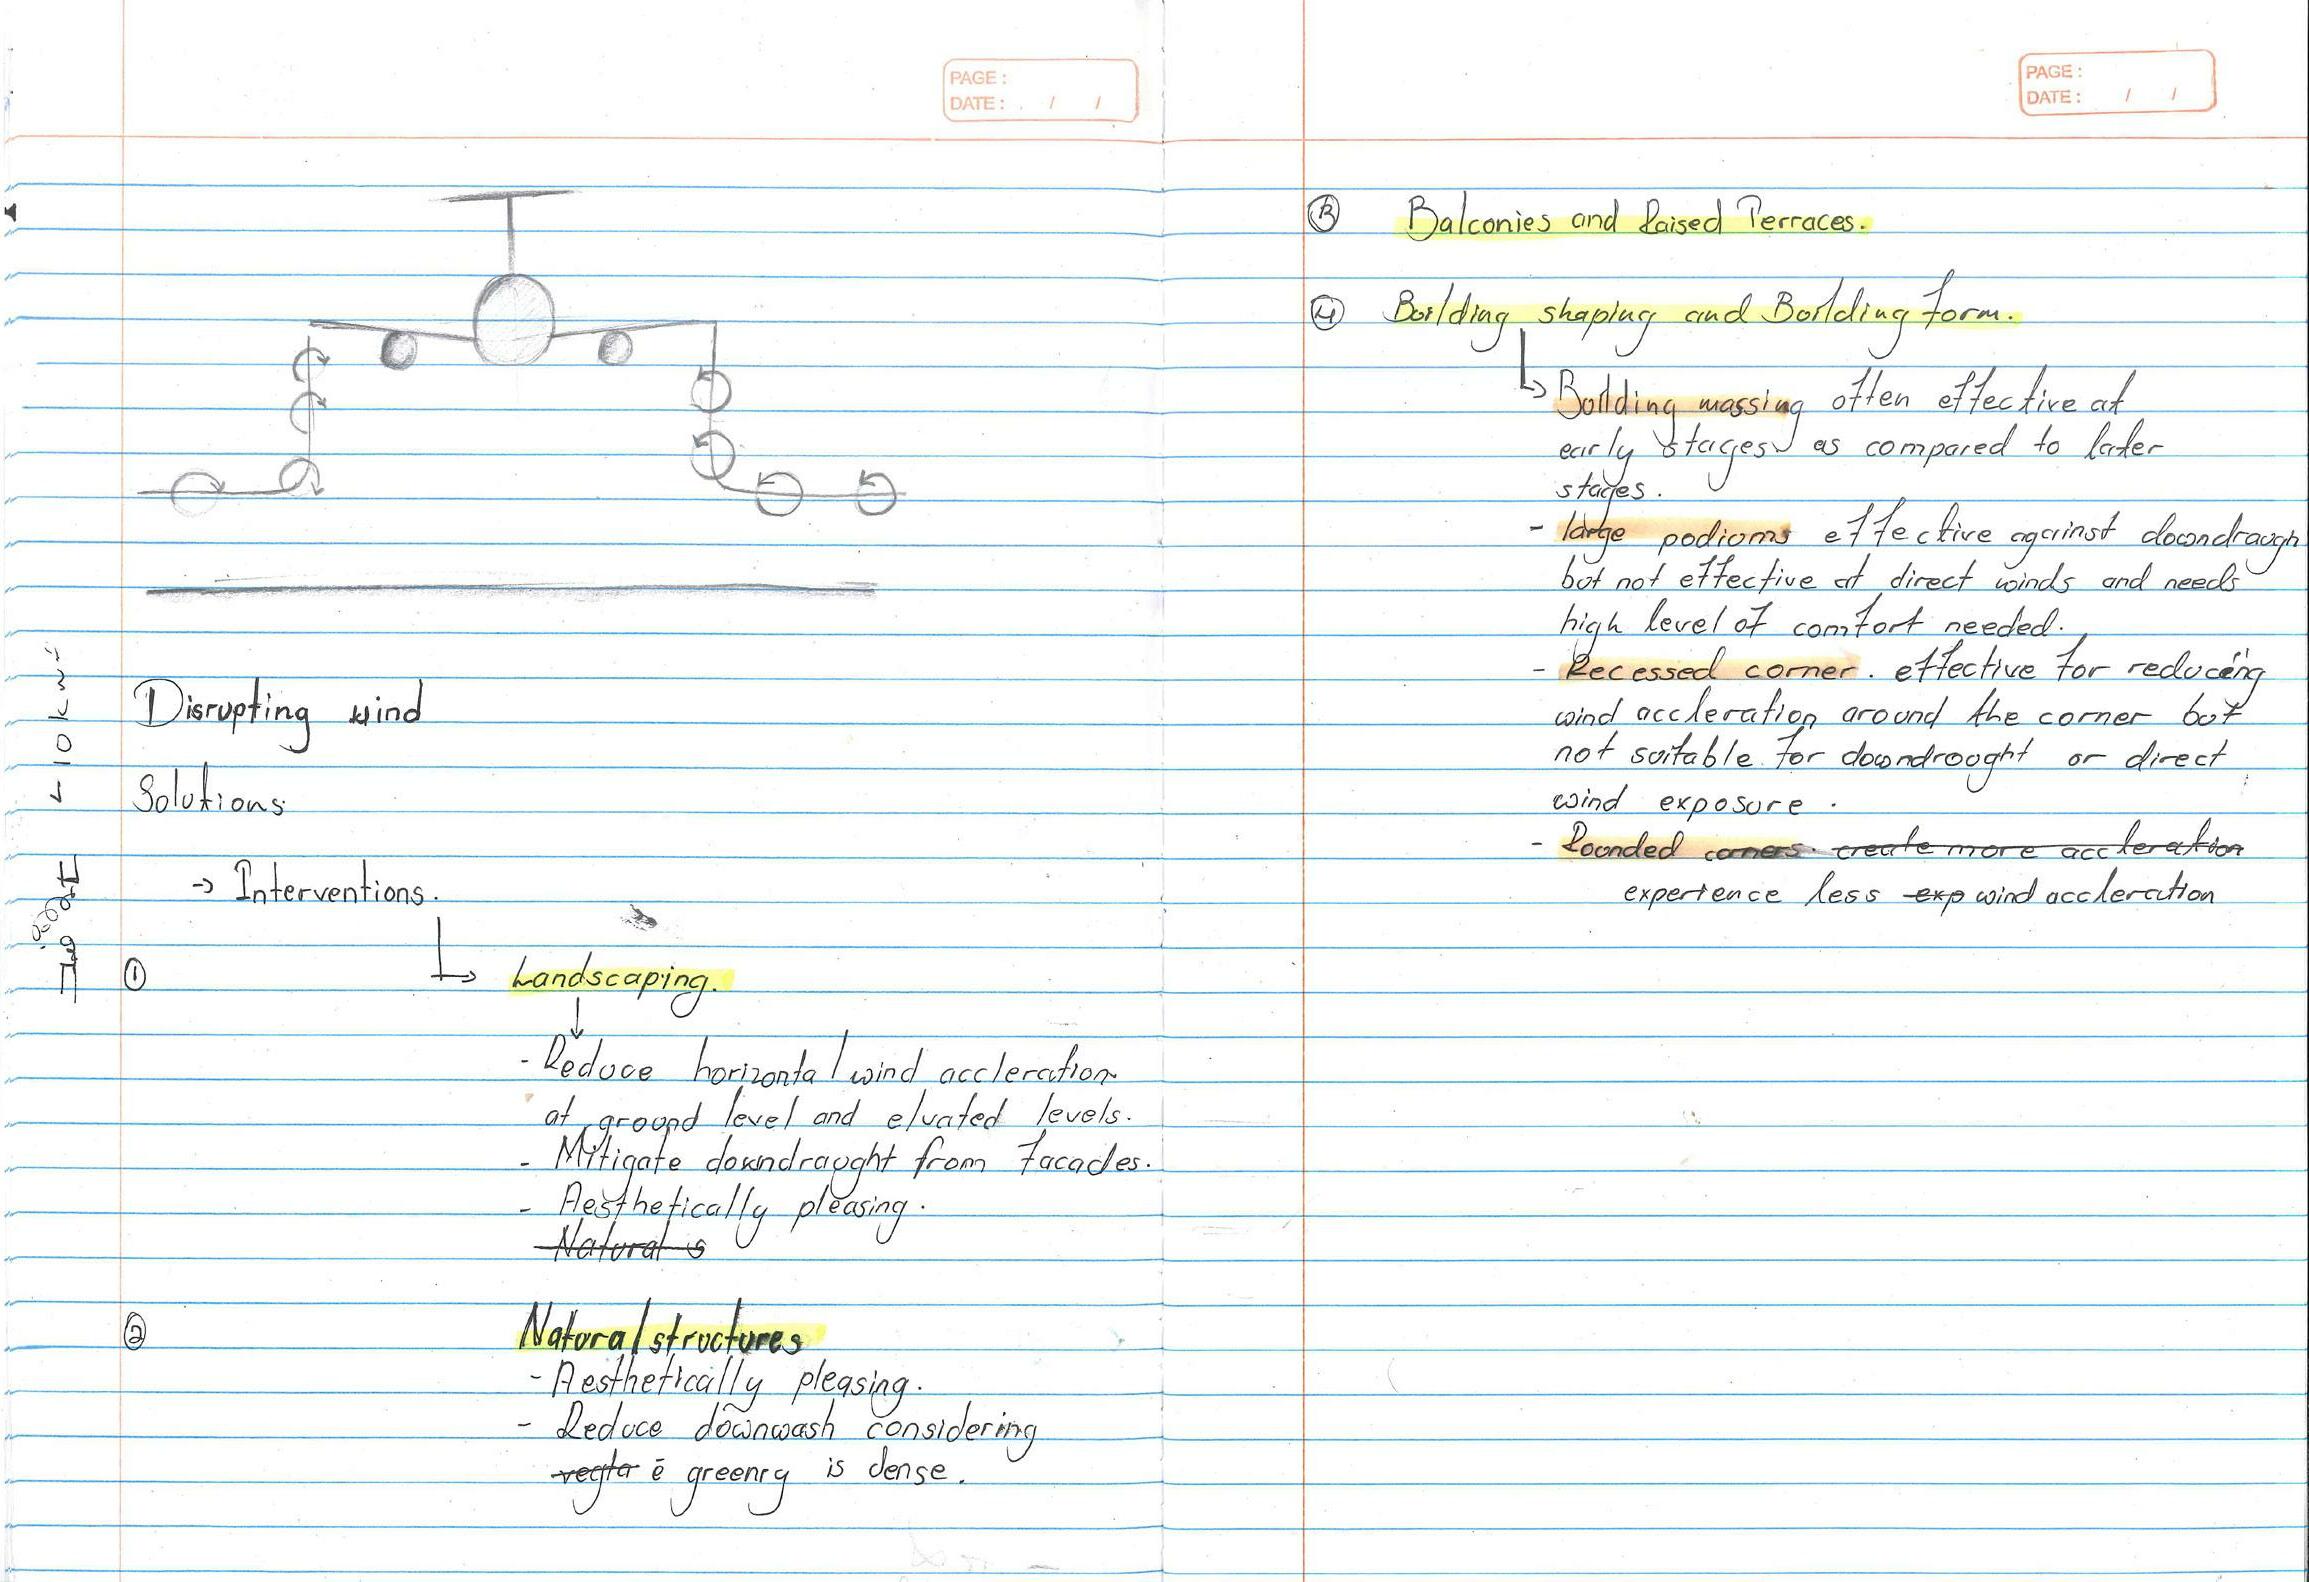 PAGE:
DATE: / /
← 10 km
Disrupting wind
Solutions
→ Interventions.
① Landscaping.
- Reduce horizontal wind accleration
at ground level and elvated levels.
- Mitigate downdraught from facades.
- Aesthetically pleasing.
Natural s
② Natural structures
- Aesthetically pleasing.
- Reduce downwash considering
vegta ē greenry is dense.
PAGE:
DATE: / /
③ Balconies and Raised Terraces.
④ Building shaping and Building form.
Building massing often effective at
early stages as compared to later
stages.
- large podiums effective against downdraugh
but not effective at direct winds and needs
high level of comfort needed.
- Recessed corner. effective for reducing
wind accleration around the corner but
not suitable for downdrought or direct
wind exposure.
- Rounded corners. create more accleration
experience less exp wind accleration